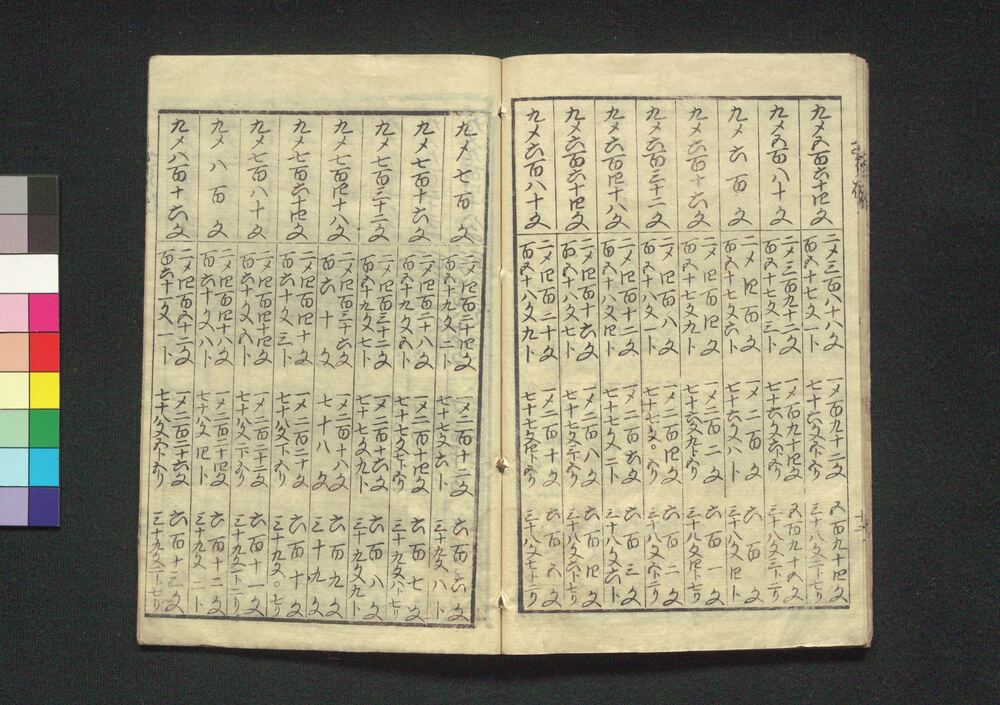 九メ五百六十四文
二メ三百八十八文
百五十七文一ト
一メ百九十二文
七十六文五ト五リ
五百九十四文
三十八文二ト七リ
九メ五百八十文
二メ三百九十二文
百五十七文三ト
一メ百九十四文
七十六文六ト五リ
五百九十五文
三十八文三ト二リ
九メ六百文
二メ四百文
百五十七文六ト
一メ二百文
七十六文八ト
六百文
三十八文四ト
九メ六百十六文
二メ四百四文
百五十七文八ト
一メ二百二文
七十六文九ト五リ
六百一文
三十八文四ト七リ
九メ六百三十二文
二メ四百八文
百五十八文一ト
一メ二百四文
七十七文〇五リ
六百二文
三十八文五ト二リ
九メ六百四十八文
二メ四百十二文
百五十八文四ト
一メ二百六文
七十七文二ト
六百三文
三十八文六ト
九メ六百六十四文
二メ四百十六文
百五十八文七ト
一メ二百八文
七十七文三ト五リ
六百四文
三十八文六ト七リ
九メ六百八十文
二メ四百二十文
百五十八文九ト
一メ二百十文
七十七文四ト五リ
六百五文
三十八文七ト二リ
九メ七百文
二メ四百二十四文
百五十九文二ト
一メ二百十二文
七十七文六ト
六百六文
三十九文八ト
九メ七百十六文
二メ四百二十八文
百五十九文五ト
一メ二百十四文
七十七文七ト五リ
六百七文
三十九文八ト七リ
九メ七百三十二文
二メ四百三十二文
百五十九文七ト
一メ二百十六文
七十七文九ト
六百八文
三十九文九ト
九メ七百四十八文
二メ四百三十六文
百六十文
一メ二百十八文
七十八文
六百九文
三十九文
九メ七百六十四文
二メ四百四十文
百六十文三ト
一メ二百二十文
七十八文一ト五リ
六百十文
三十九文〇七リ
九メ七百八十文
二メ四百四十四文
百六十文五ト
一メ二百二十二文
七十八文二ト五リ
六百十一文
三十九文一ト二リ
九メ八百文
二メ四百四十八文
百六十文八ト
一メ二百二十四文
七十八文四ト
六百十二文
三十九文二ト
九メ八百十六文
二メ四百五十二文
百六十一文一ト
一メ二百二十六文
七十八文五ト五リ
六百十三文
三十九文二ト七リ